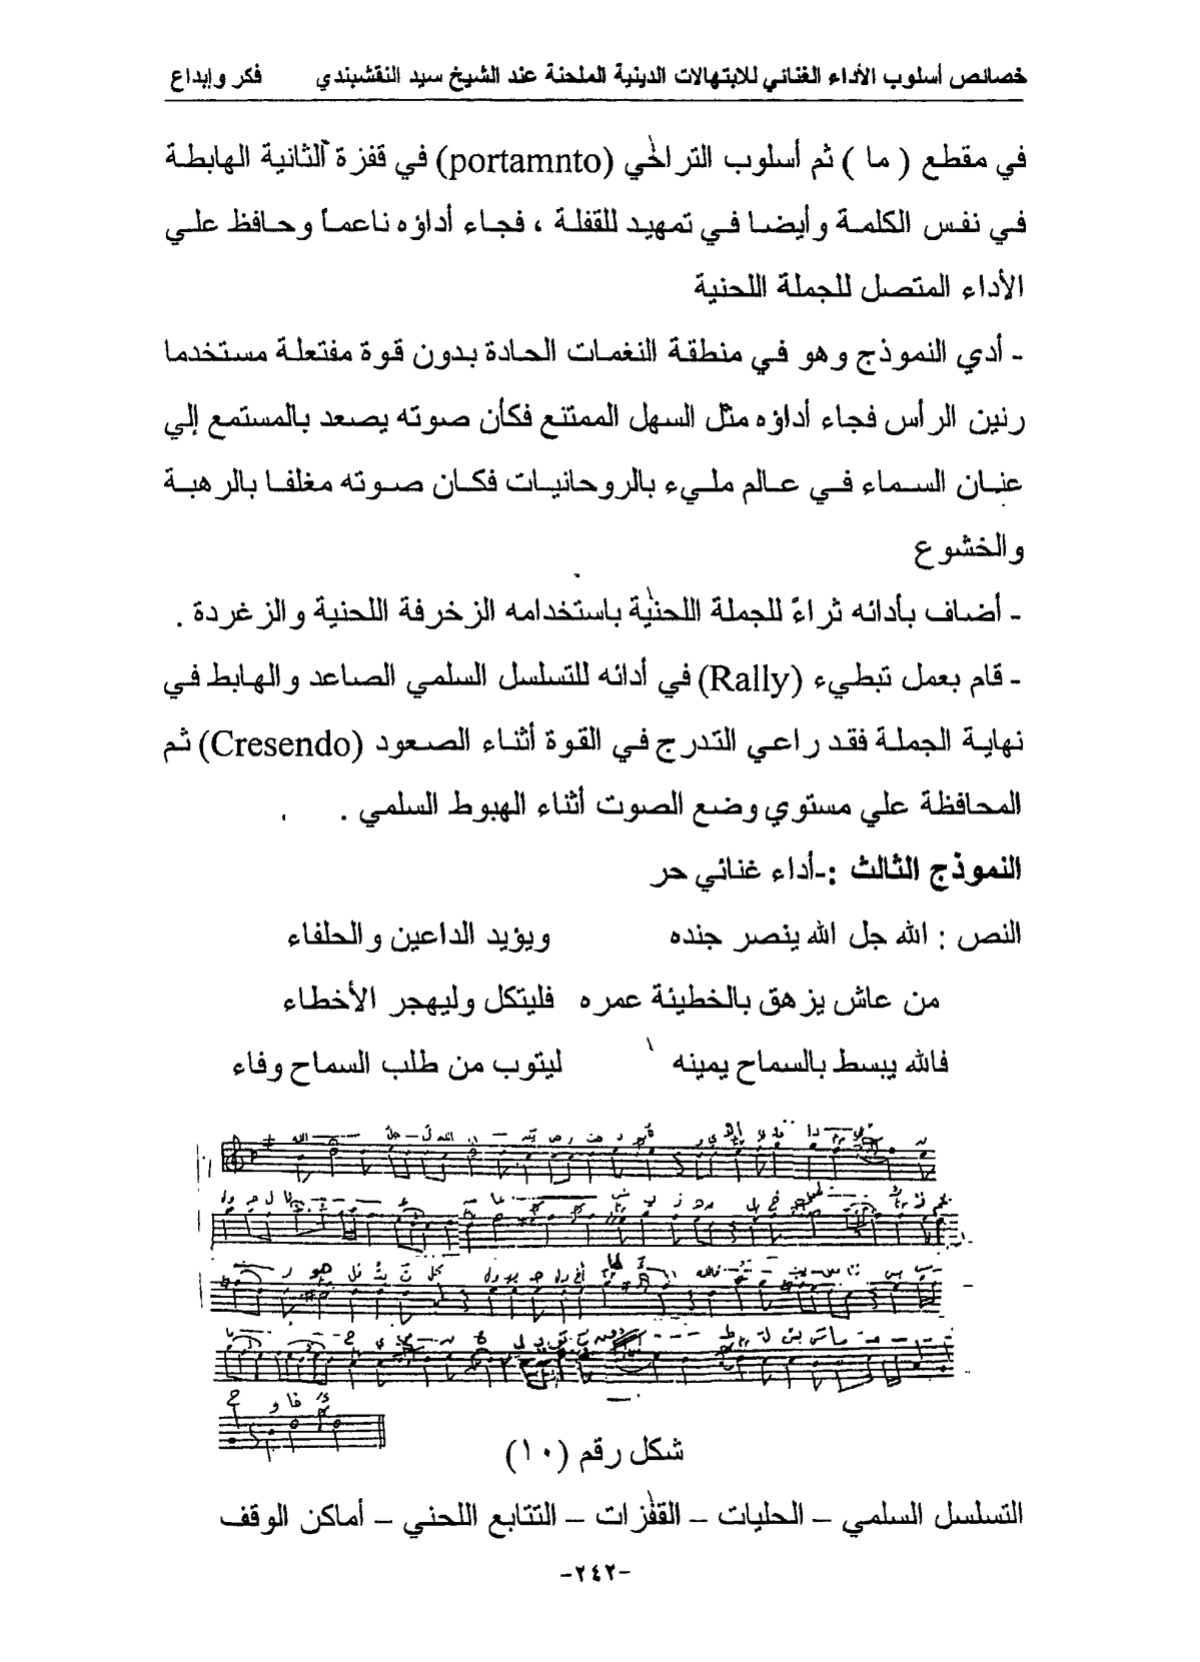 خصائص أسلوب الأداء الغنائي للابتهالات الدينية الملحنة عند الشيخ سيد النقشبندي فكر وإبداع
في مقطع ( ما ) ثم أسلوب التراخي (portamnto) في قفزة الثانية الهابطة
في نفس الكلمة وأيضا في تمهيد للقفلة ، فجاء أداؤه ناعماً وحافظ علي
الأداء المتصل للجملة اللحنية
- أدي النموذج وهو في منطقة النغمات الحادة بدون قوة مفتعلة مستخدما
رنين الرأس فجاء أداؤه مثل السهل الممتنع فكأن صوته يصعد بالمستمع إلي
عنان السماء في عالم مليء بالروحانيات فكان صوته مغلفا بالرهبة
والخشوع
- أضاف بأدائه ثراءً للجملة اللحنية باستخدامه الزخرفة اللحنية والزغردة .
- قام بعمل تبطيء (Rally) في أدائه للتسلسل السلمي الصاعد والهابط في
نهاية الجملة فقد راعي التدرج في القوة أثناء الصعود (Cresendo) ثم
المحافظة علي مستوي وضع الصوت أثناء الهبوط السلمي .
النموذج الثالث :-أداء غنائي حر
النص : الله جل الله ينصر جنده ويؤيد الداعين والحلفاء
من عاش يزهق بالخطيئة عمره فليتكل وليهجر الأخطاء
فالله يبسط بالسماح يمينه ليتوب من طلب السماح وفاء
شكل رقم (١٠)
التسلسل السلمي – الحليات – القفزات – التتابع اللحني – أماكن الوقف
-٢٤٢-